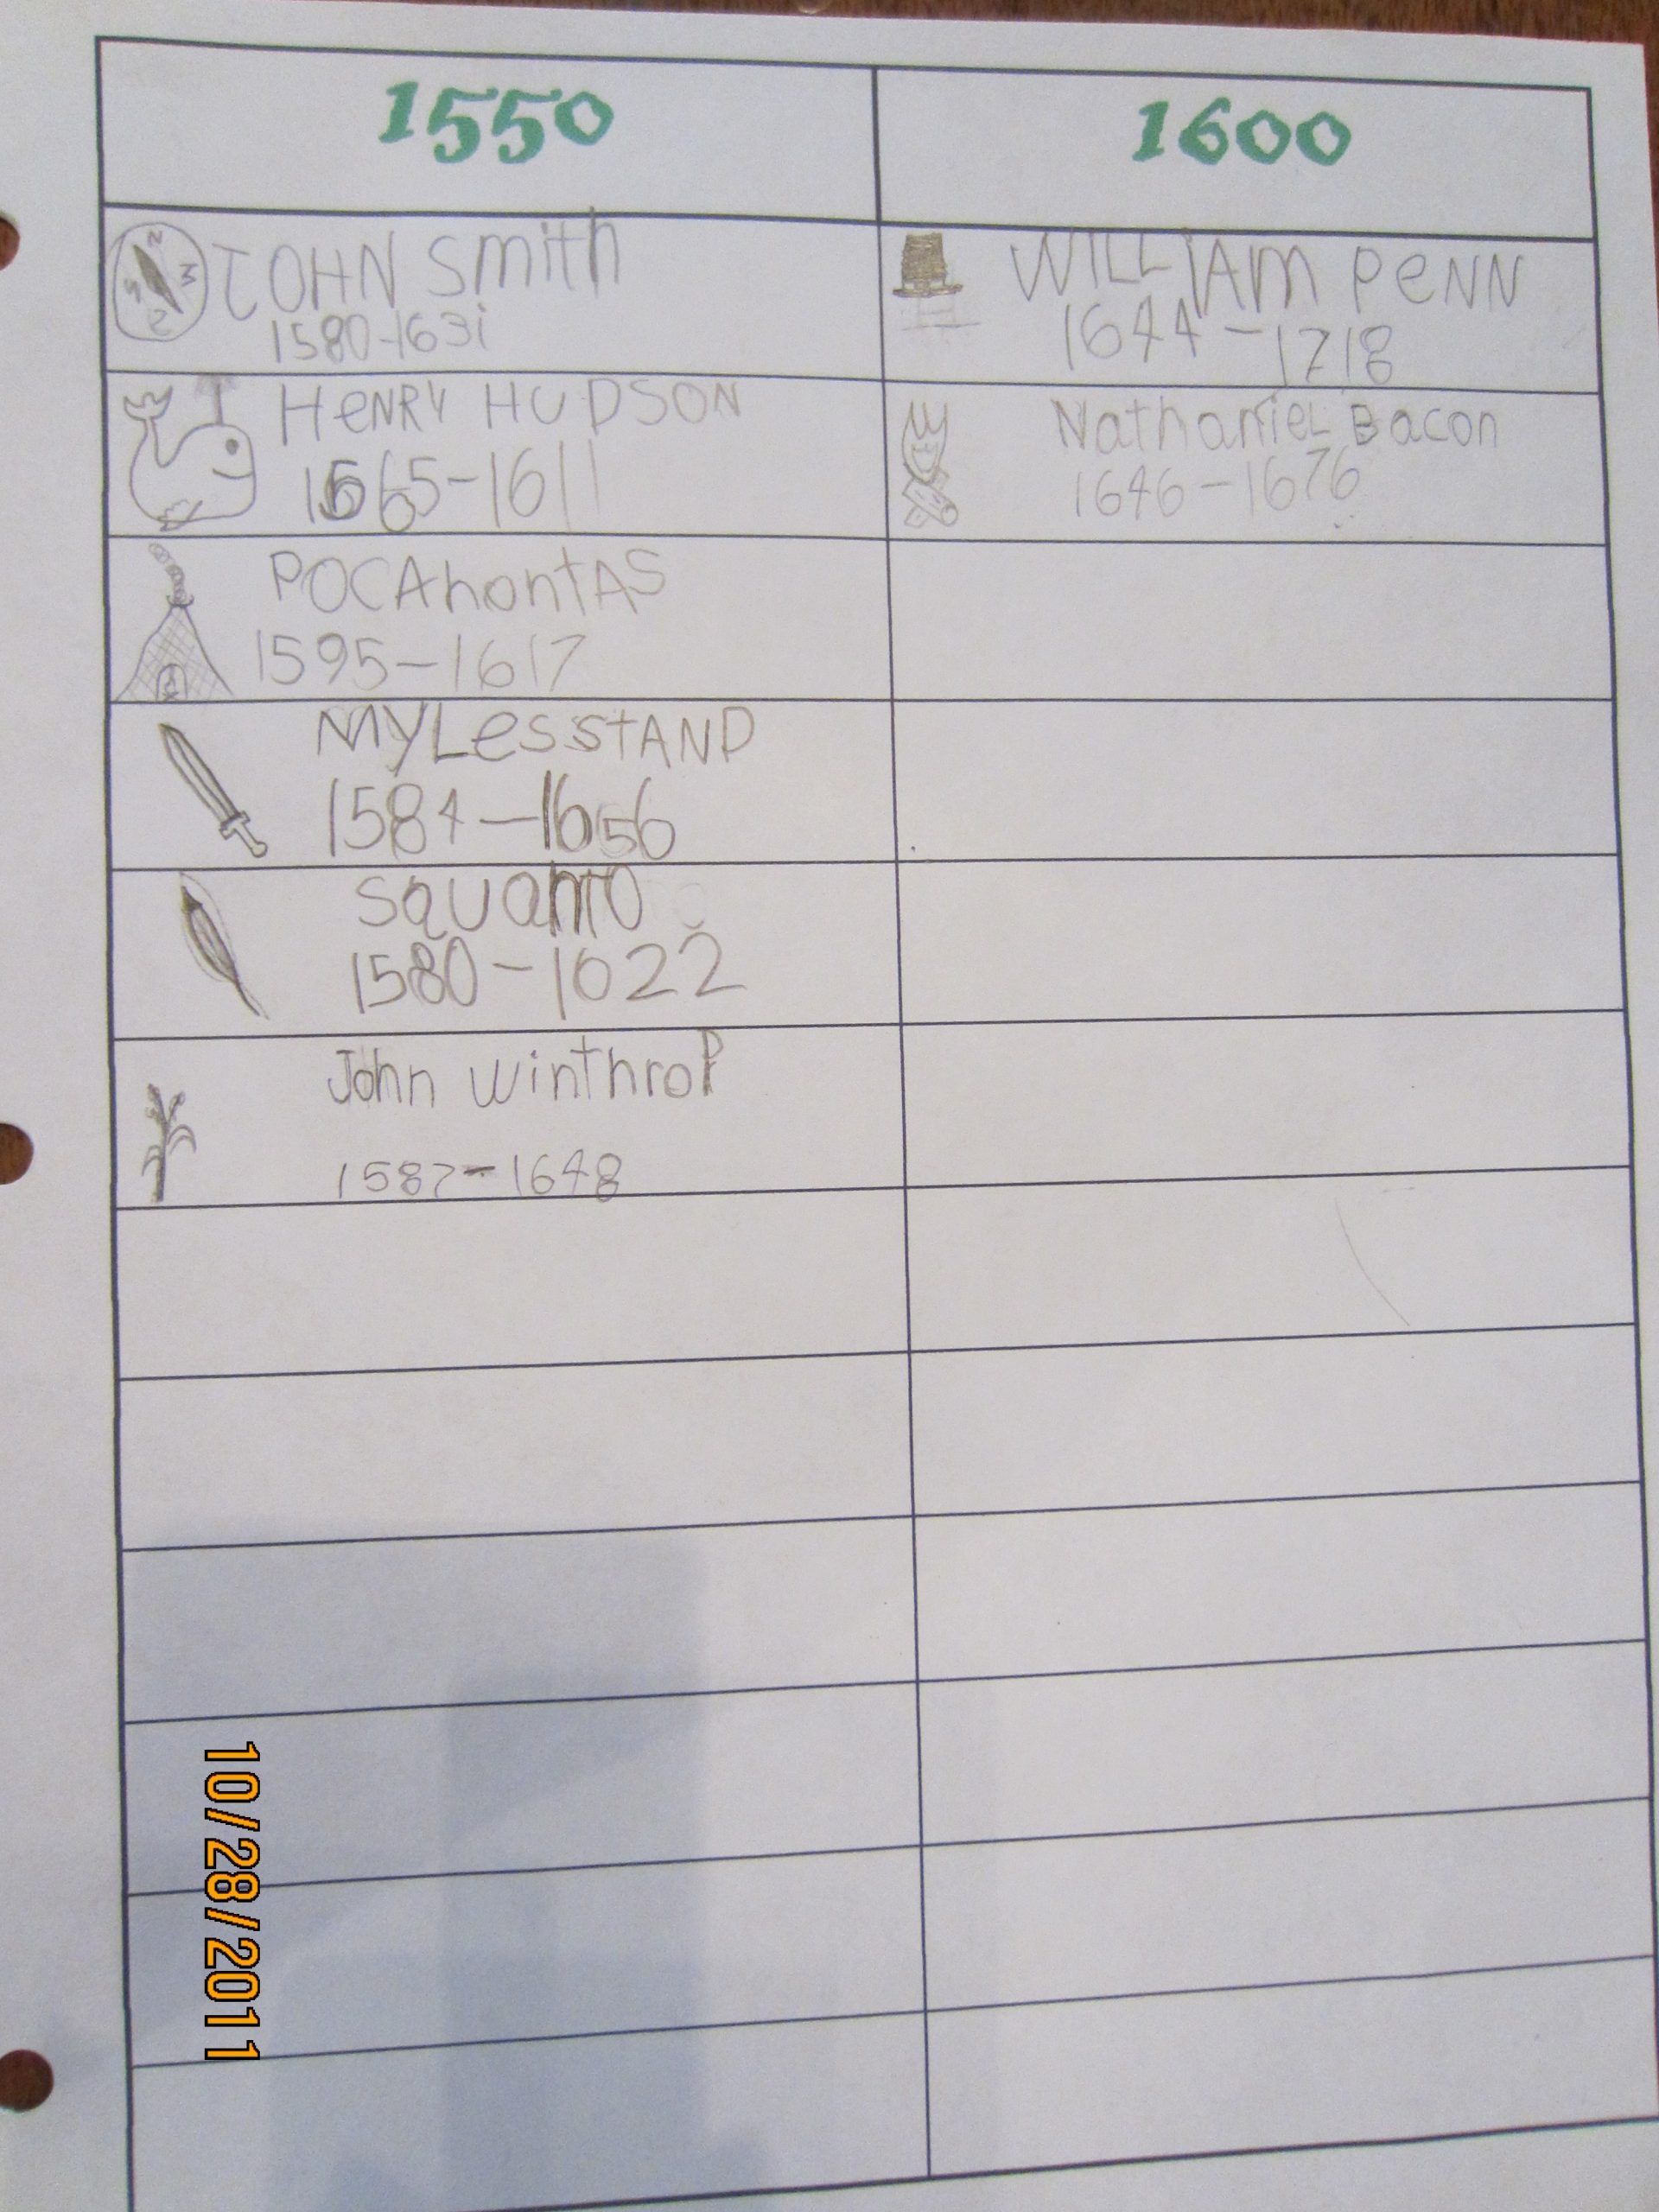 1550
1600
JOHN Smith
1580-1631
WILLIAm PeNN
1644-1718
HeNRY HUDSON
1565-1611
Nathaniel Bacon
1646-1676
POCAhontAS
1595-1617
MYLesstAND
1584-1656
SQUANTO
1580-1622
John WinthroP
1587-1648
10/28/2011